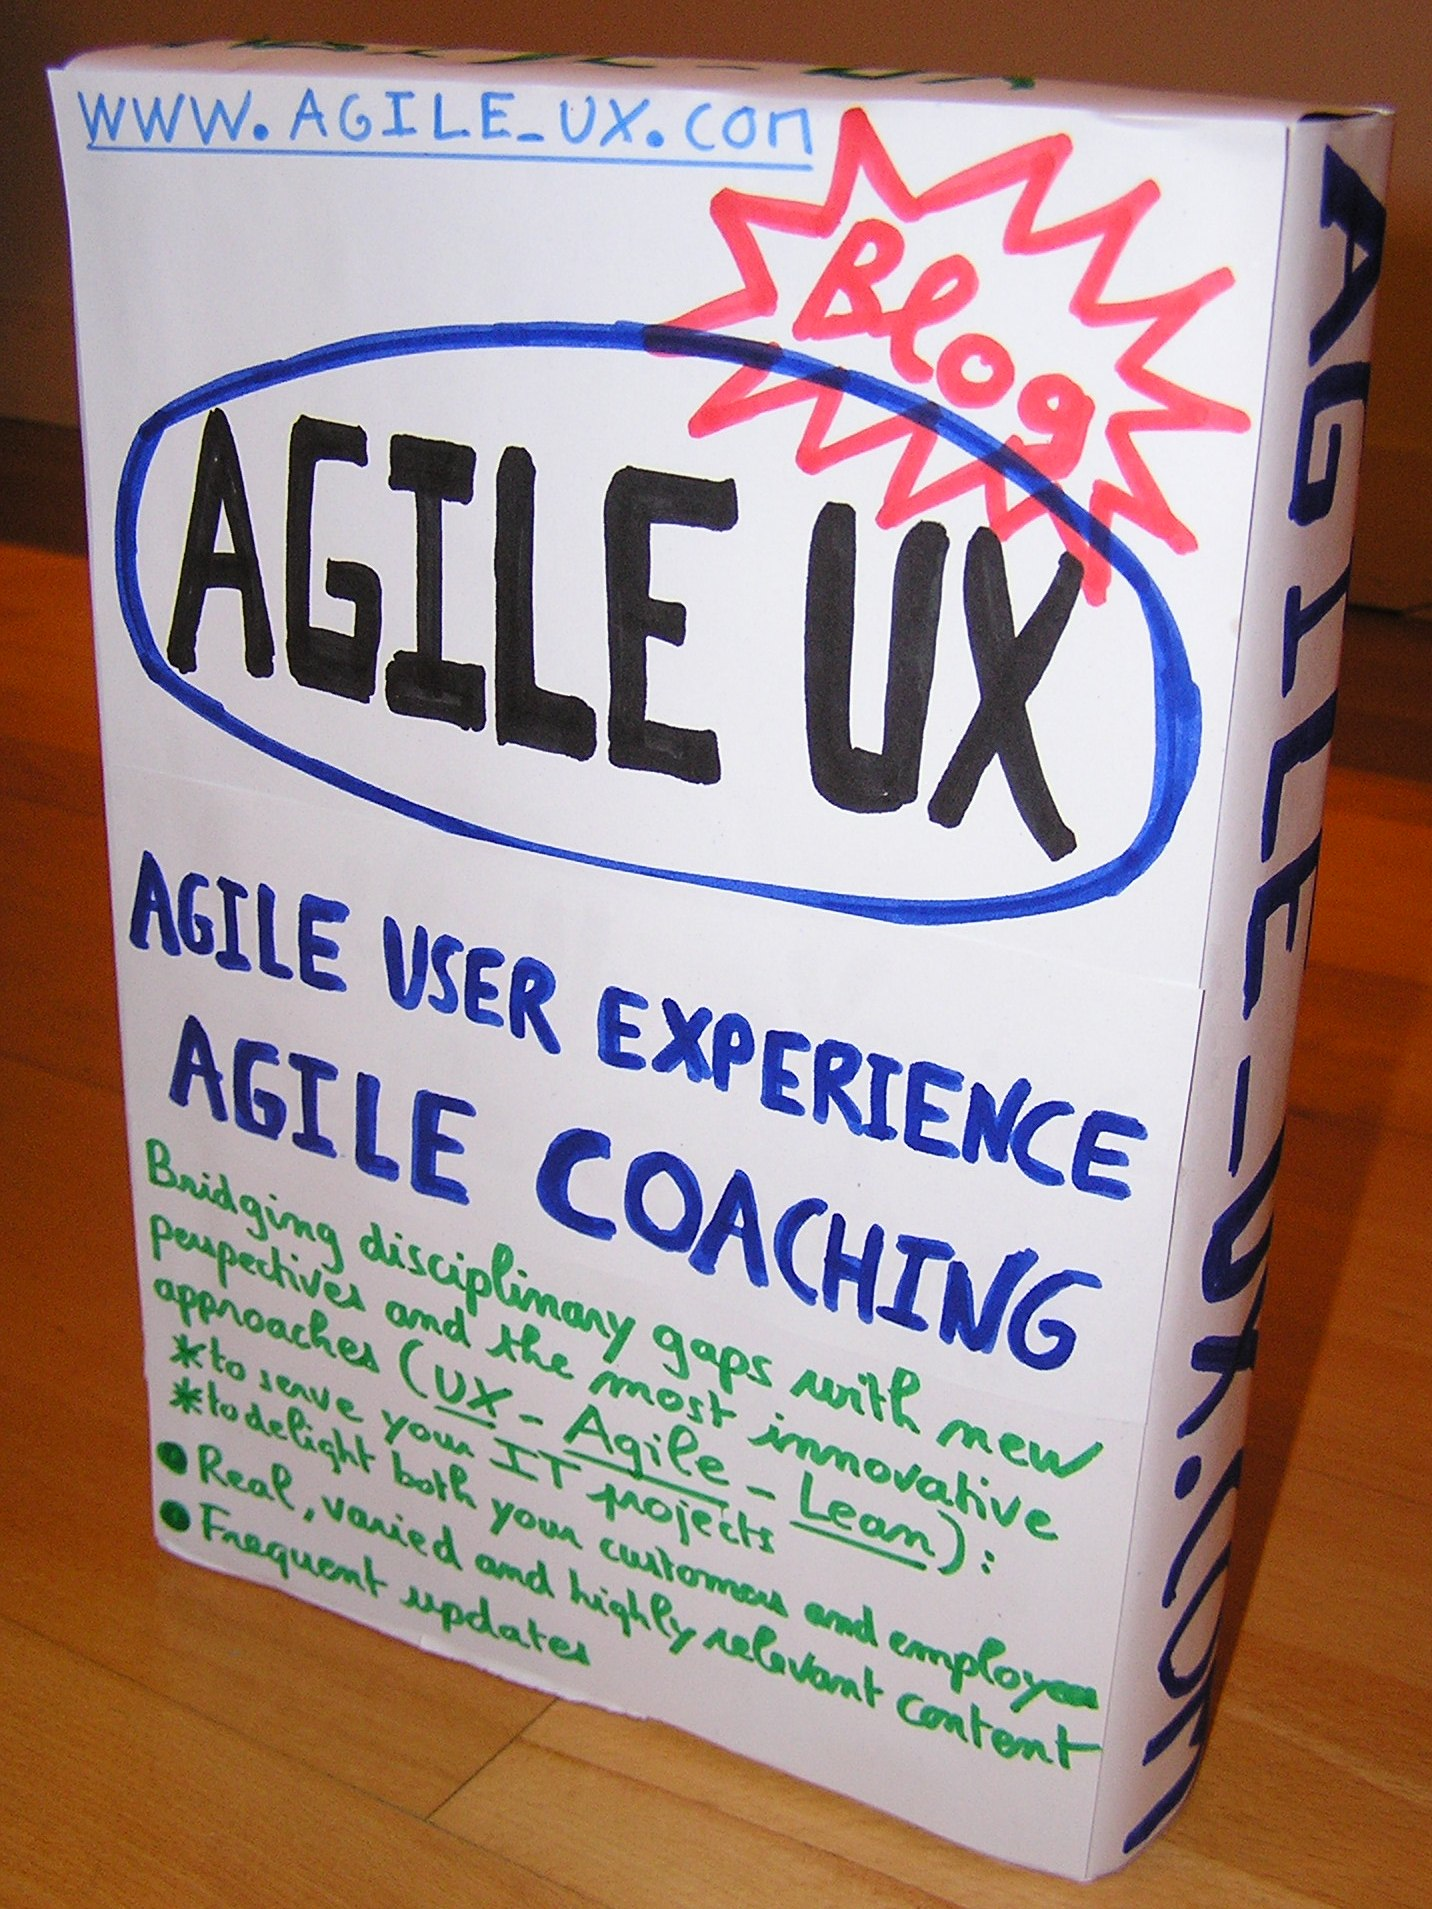 WWW.AGILE_UX.COM
Blog
AGILE UX
AGILE USER EXPERIENCE
AGILE COACHING
Bridging disciplinary gaps with new
perspectives and the most innovative
approaches (UX - Agile - Lean):
*to serve your IT projects
*to delight both your customers and employees
• Real, varied and highly relevant content
• Frequent updates
AGILE_UX.COM